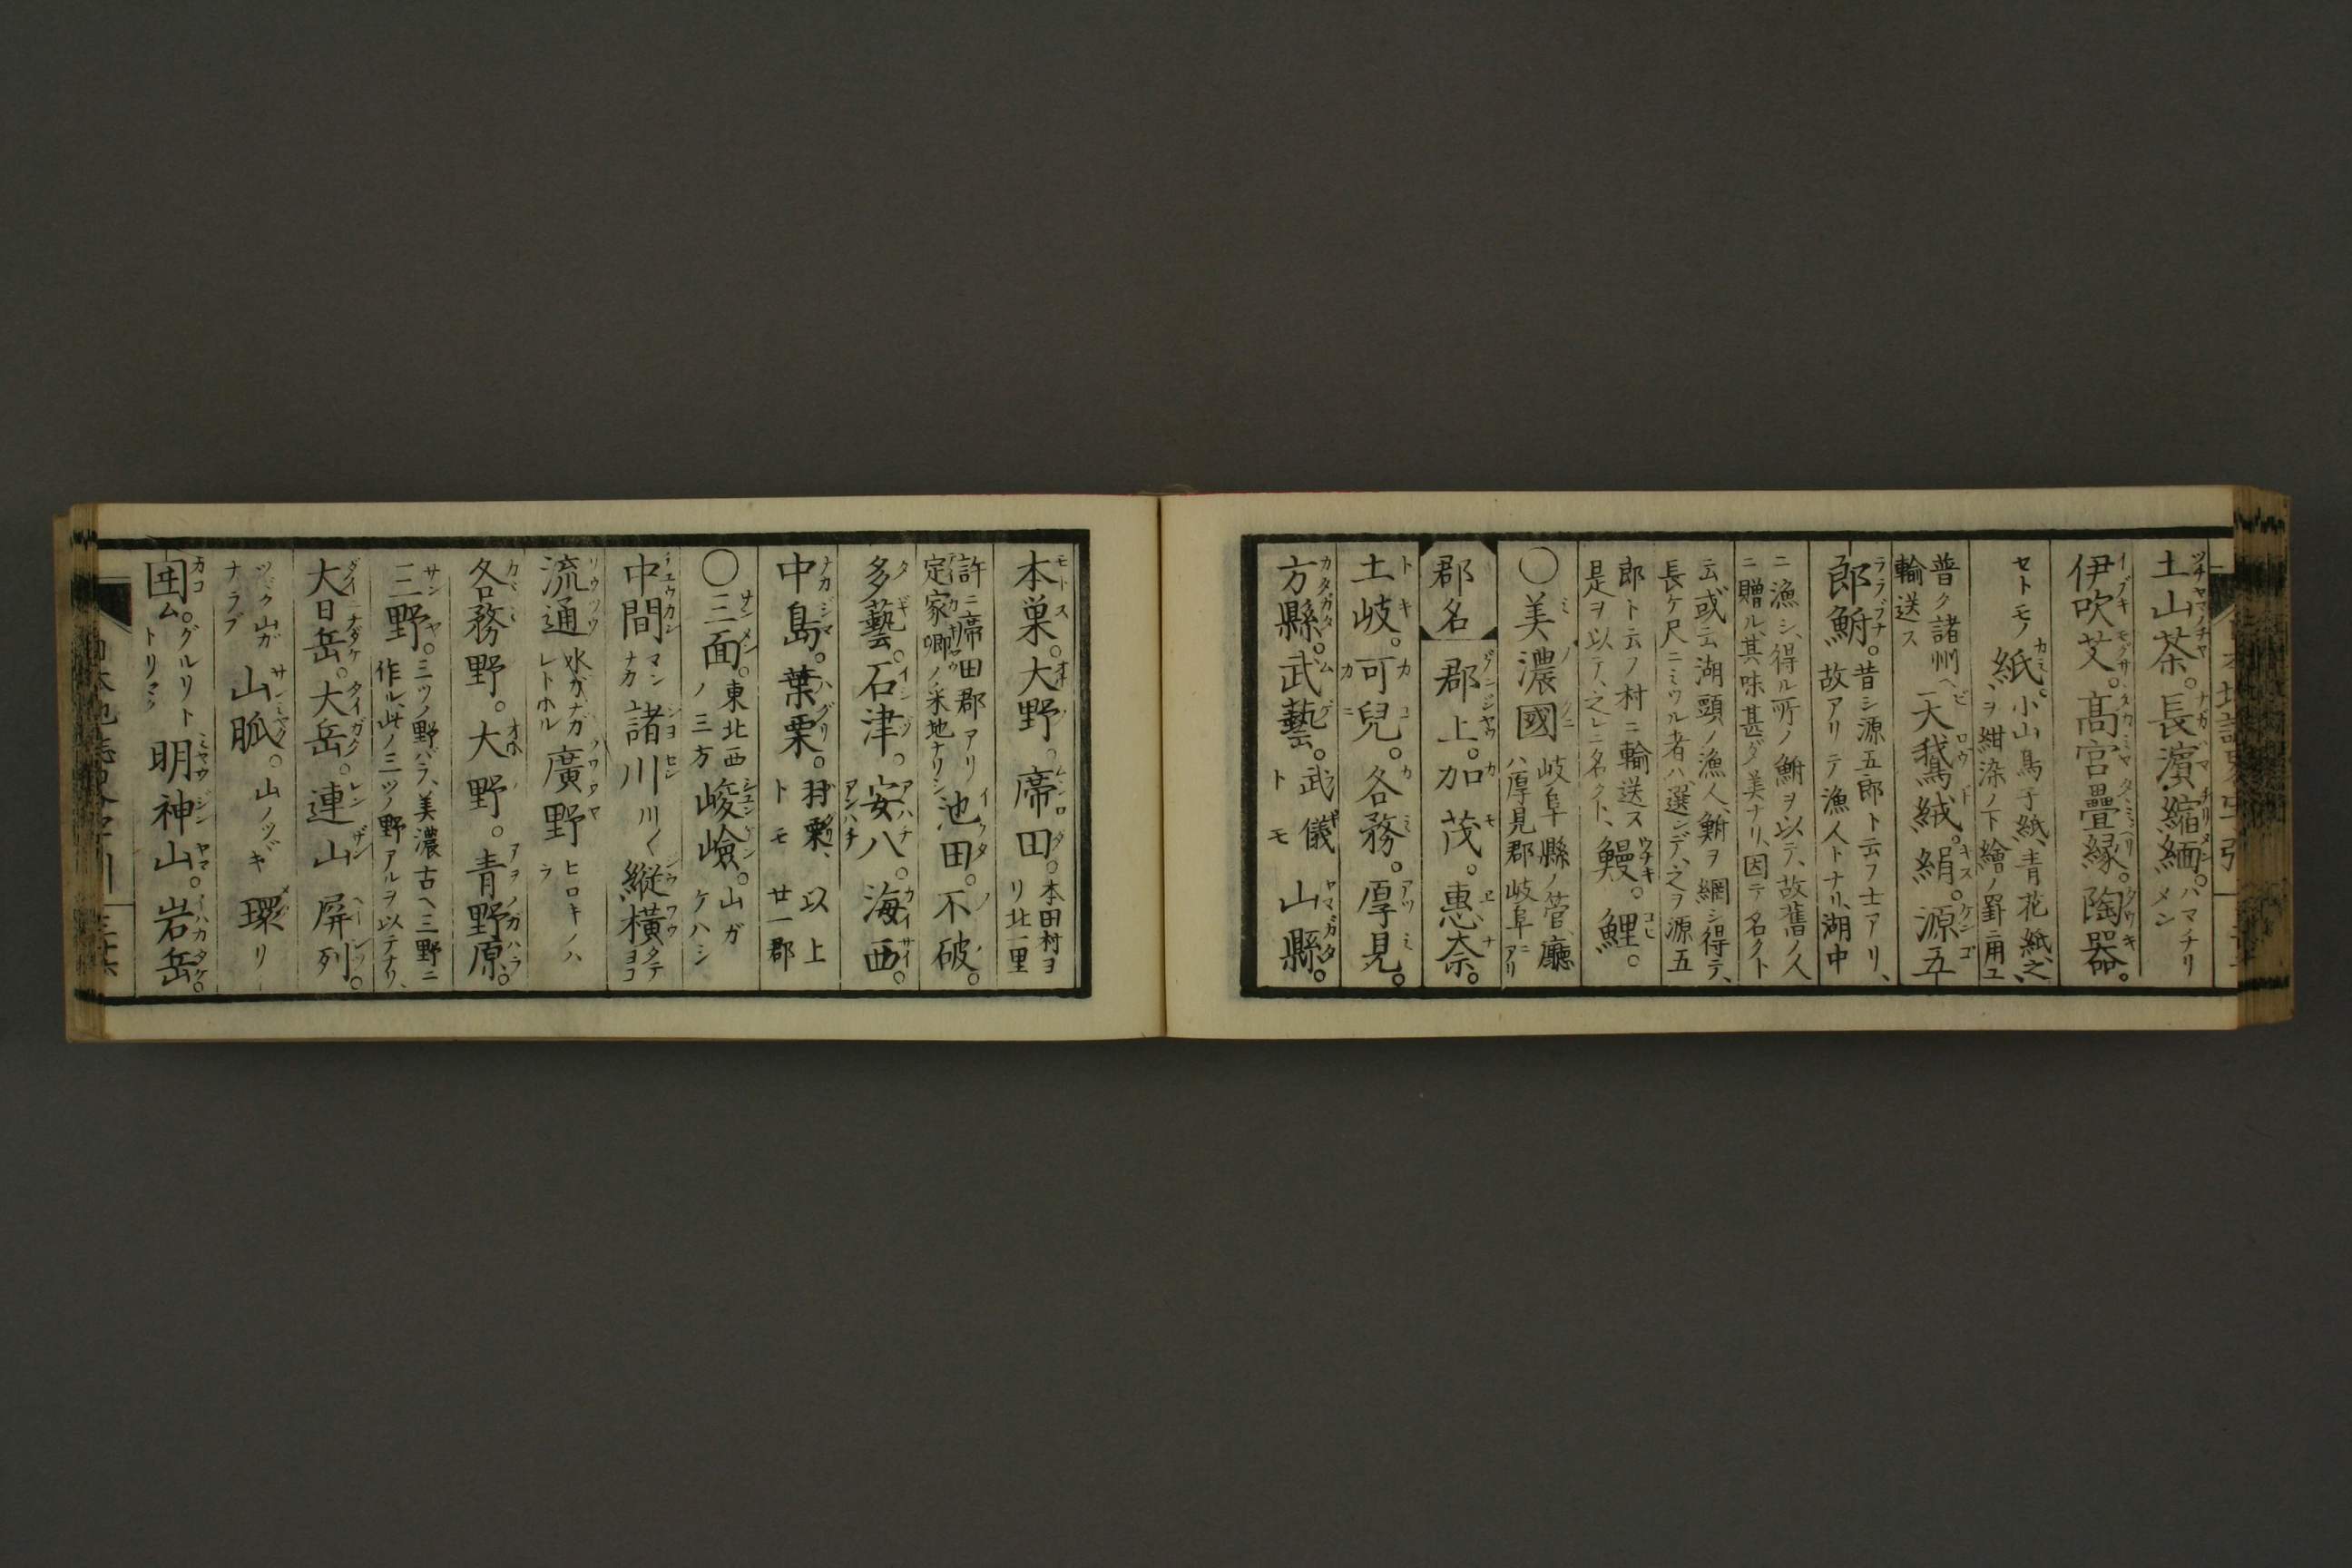 土山茶。長濵縮緬。ハマチリメン
伊吹艾。髙宮疊縁。陶器。
セトモノ 紙。小山鳥子紙、青花紙、之ヲ紺染ノ下繪ノ罫ニ用ユ
普ク諸州ヘ輸送ス 天鵞絨。絹。源五
郎鮒。昔シ源五郎ト云フ士アリ、故アリテ漁人トナリ、湖中
ニ漁シ、得ル所ノ鮒ヲ以テ、故舊ノ人ニ贈ル、其味甚ダ美ナリ、因テ名クト
云、或云湖頭ノ漁人、鮒ヲ網シ得テ、長ケ尺ニミツル者ハ選ンデ、之ヲ源五
郎ト云ノ村ニ輸送ス是ヲ以テ、之レニ名クト、鰻。鯉。
○美濃國 岐阜縣ノ管、廳ハ厚見郡岐阜ニアリ
郡名 郡上。加茂。惠奈。
土岐。可兒。各務。厚見。
方縣。武藝。武儀トモ 山縣。
本巣。大野。席田。本田村ヨリ北一里
許ニ席田郡アリ定家卿ノ采地ナリシ、池田。不破。
多藝。石津。安八。海西。
中島。葉栗。羽栗、トモ 以上廿一郡
○三面。東北西ノ三方 峻嶮。山ガケハシ
中間マンナカ 諸川川〱 縱横タテヨコ
流通水ガナガレトホル 廣野ヒロキノハラ
各務野。大野。青野原。
三野。三ツノ野バラ、美濃古ヘ三野ニ作ル、此ノ三ツノ野アルヲ以テナリ、
大日岳。大岳。連山屏列。
ツヾク山ガナラブ 山脈。山ノツヾギ 環リ
囲ム。グルリトトリマク 明神山。岩岳。